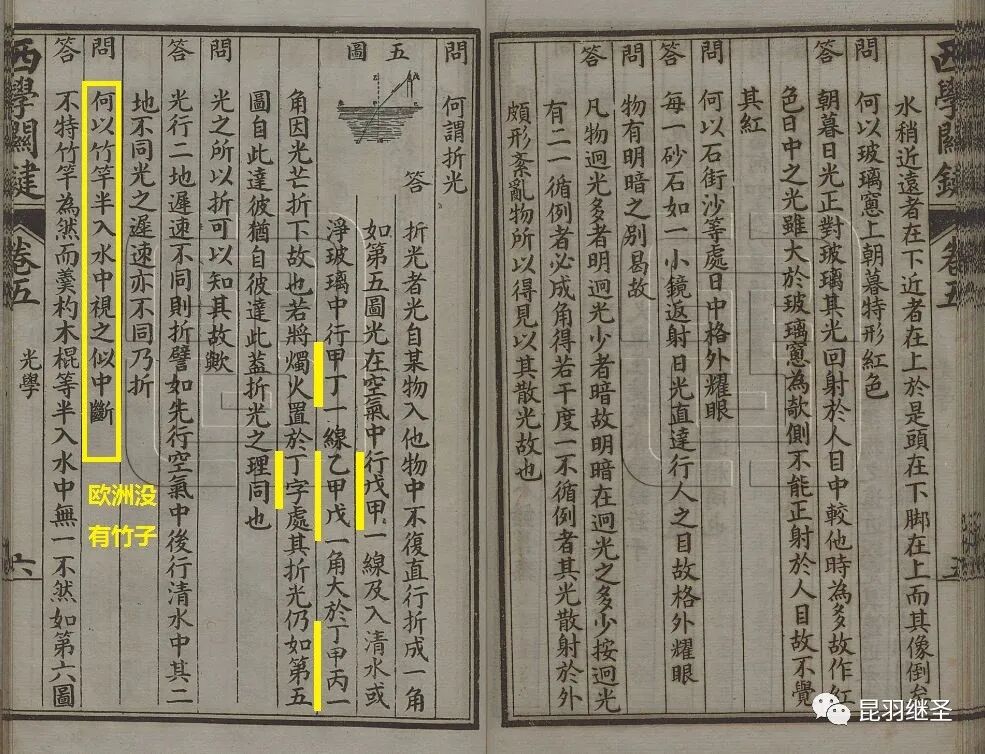 西學關鍵 卷五 五
水稍近遠者在下近者在上於是頭在下脚在上而其像倒矣
問 何以玻璃窻上朝暮特形紅色
答 朝暮日光正對玻璃其光回射於人目中較他時為多故作紅
色日中之光雖大於玻璃窻為欹側不能正射於人目故不覺
其紅
問 何以石街沙等處日中格外耀眼
答 每一砂石如一小鏡返射日光直達行人之目故格外耀眼
問 物有明暗之別曷故
答 凡物迴光多者明迴光少者暗故明暗在迴光之多少按迴光
有二一循例者必成角得若干度一不循例者其光散射於外
頗形紊亂物所以得見以其散光故也
問 何謂折光
答 折光者光自某物入他物中不復直行折成一角
五圖
如第五圖光在空氣中行戊甲一線及入清水或
淨玻璃中行甲丁一線乙甲戊一角大於丁甲丙一
角因光芒折下故也若將燭火置於丁字處其折光仍如第五
圖自此達彼猶自彼達此蓋折光之理同也
問 光之所以折可以知其故歟
答 光行二地遲速不同則折譬如先行空氣中後行清水中其二
地不同光之遲速亦不同乃折
問 何以竹竿半入水中視之似中斷
答 不特竹竿為然而羹杓木棍等半入水中無一不然如第六圖
西學關鍵 卷五 光學 六
欧洲没
有竹子
昆羽继圣